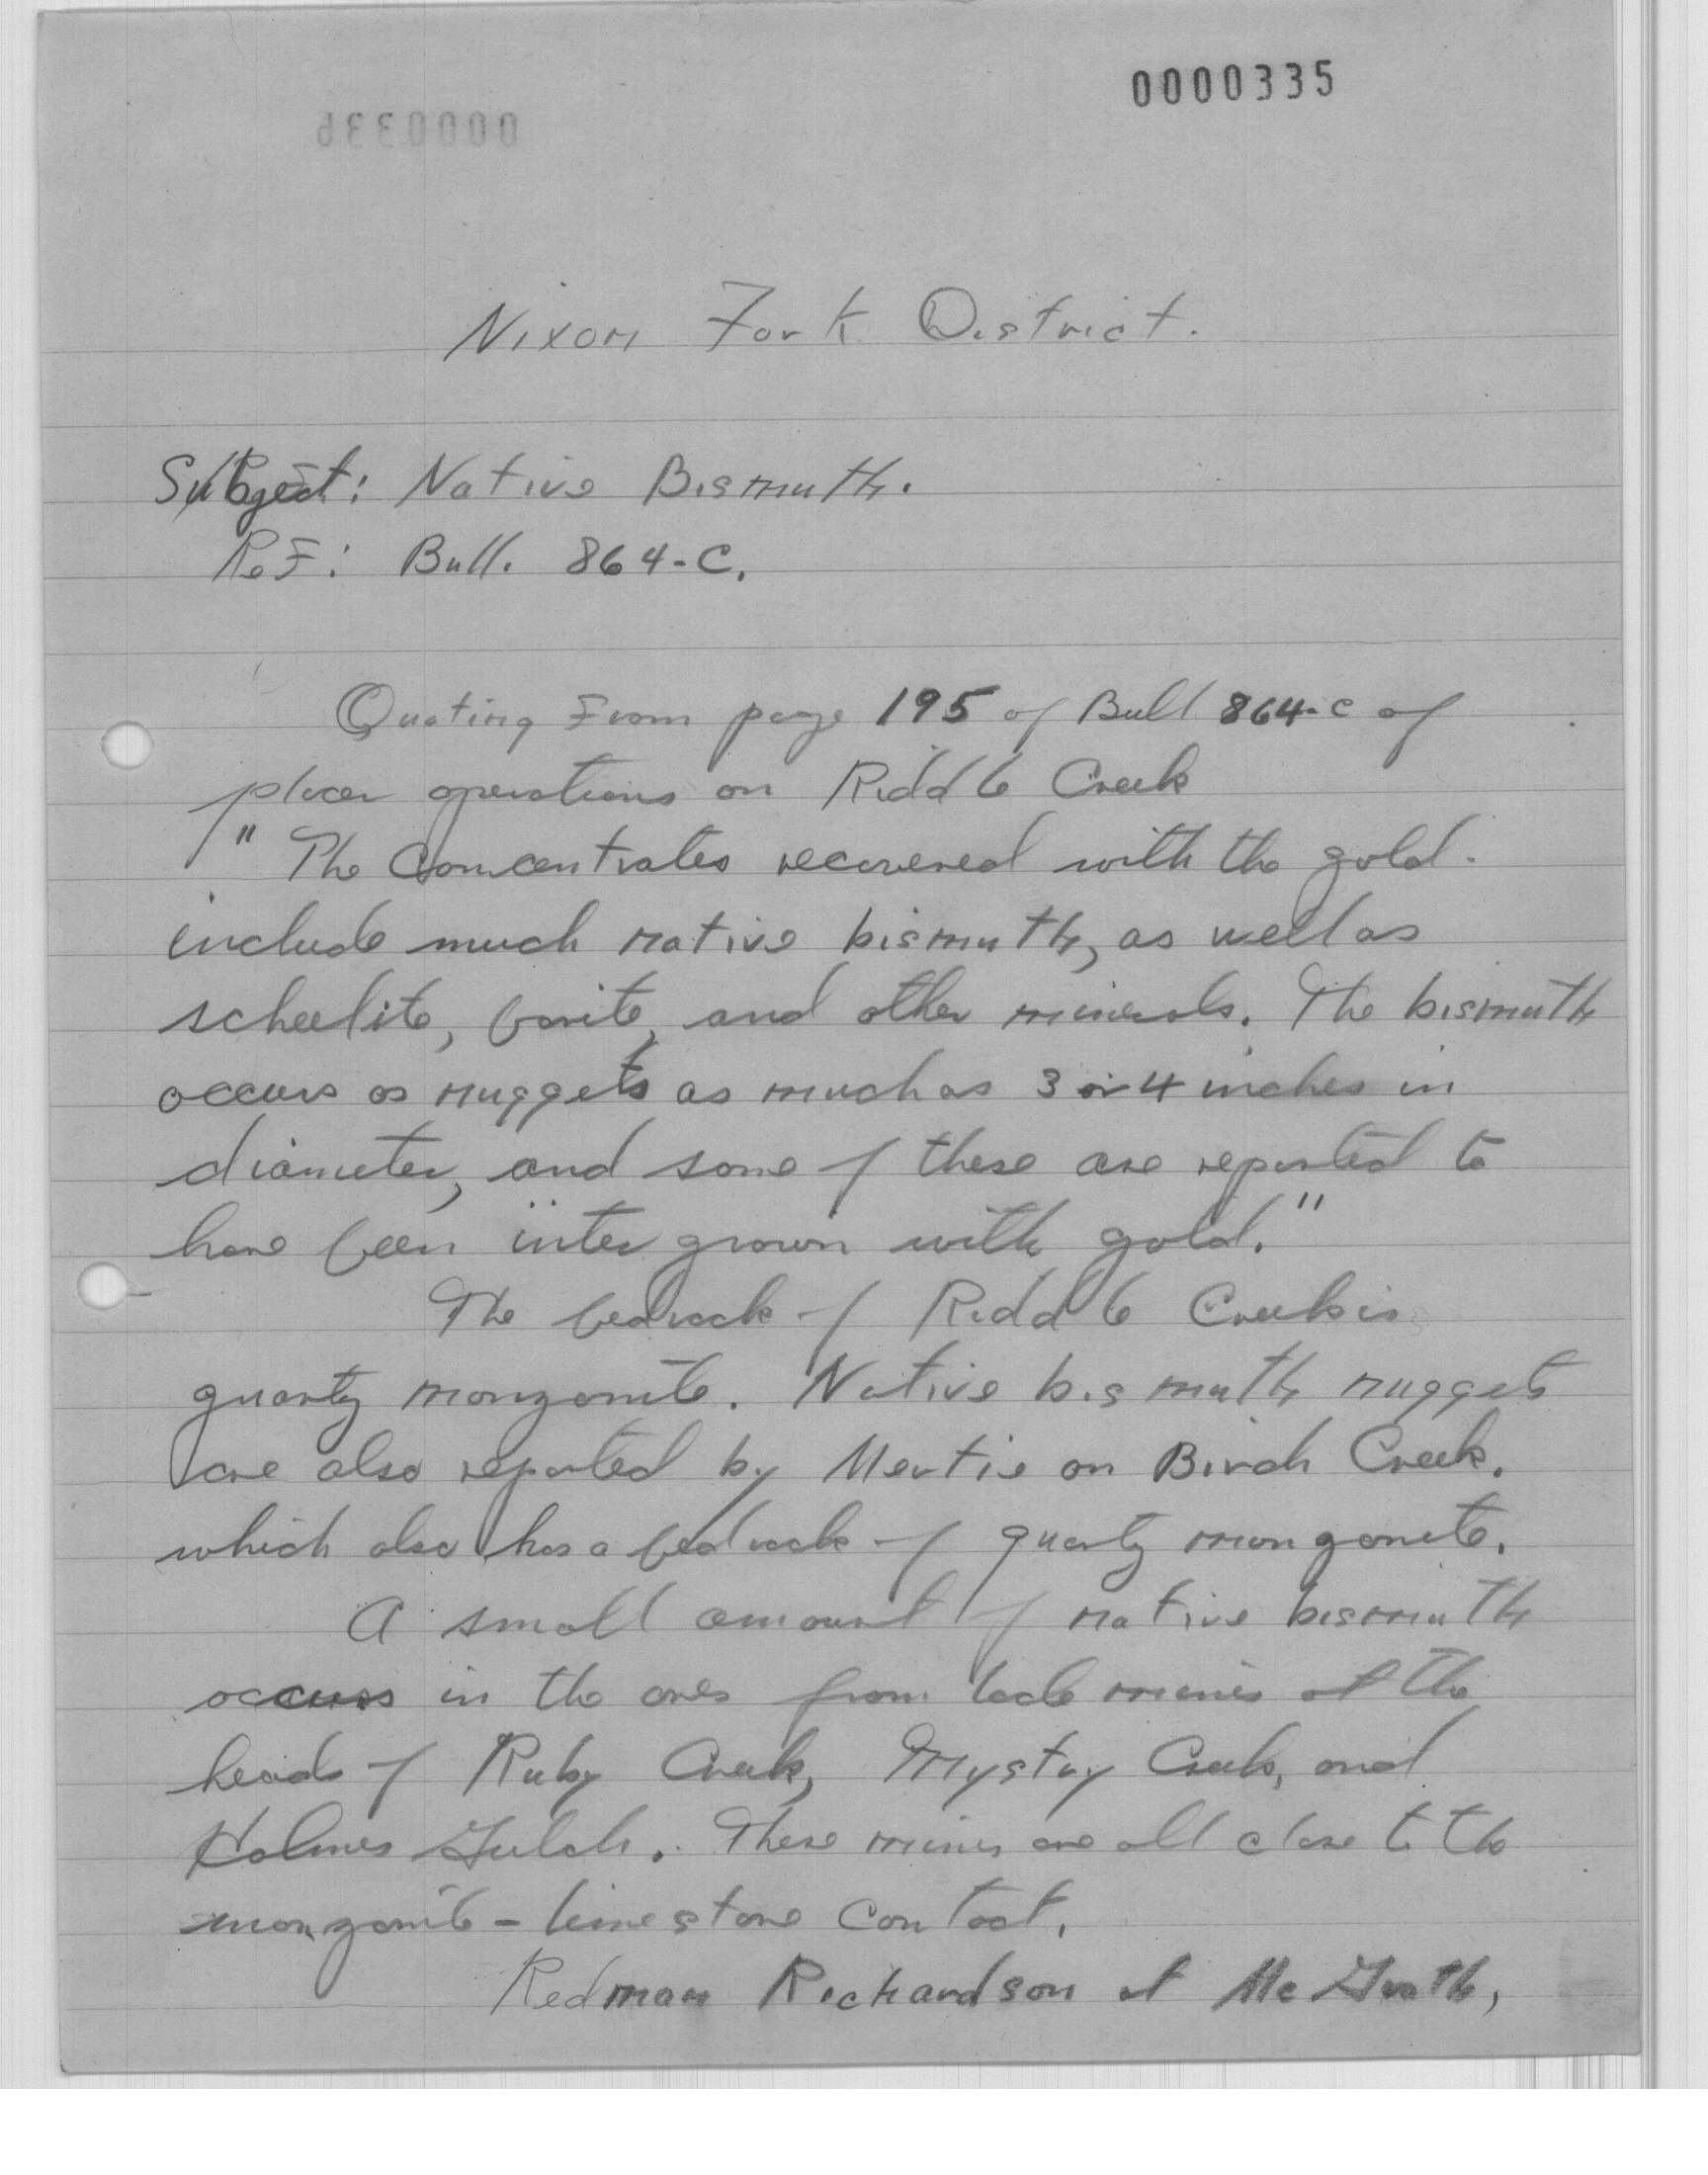 0000335
Nixon Fork District.
Subject: Native Bismuth.
Ref: Bull. 864-C.
Quoting from page 195 of Bull 864-C of
placer operations on Riddle Creek
"The Concentrates recovered with the gold.
include much native bismuth, as well as
scheelite, barite, and other minerals. The bismuth
occurs as nuggets as much as 3 or 4 inches in
diameter, and some of these are reported to
have been inter grown with gold."
The bedrock of Riddle Creek is
quartz monzonite. Native bismuth nuggets
are also reported by Mertie on Birch Creek.
which also has a bedrock of quartz monzonite.
A small amount of native bismuth
occurs in the ores from lode mines at the
heads of Ruby Creek, Mystery Creek, and
Holmes Gulch. These mines are all close to the
monzonite - limestone contact.
Redman Richardson at McGrath,